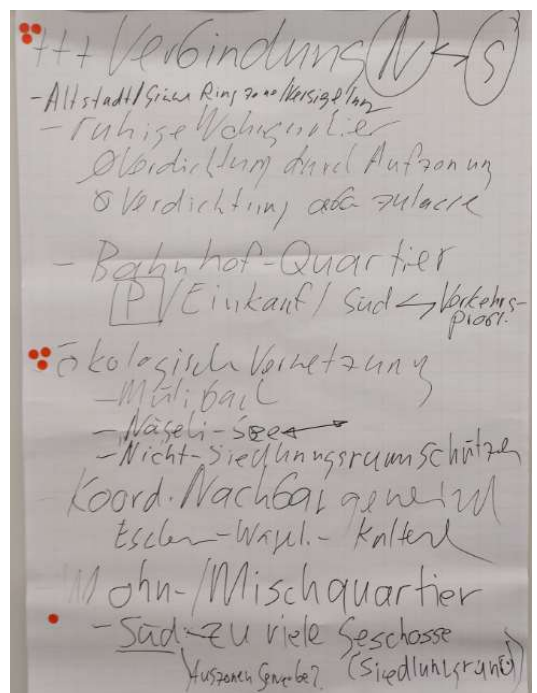 +++ Verbindung N ↔ S
- Altstadt/Grüne Ringzone/Versigelung
- ruhige Wohnquartier
Verdichtung durch Aufzonung
Verdichtung
- Bahnhof-Quartier
P /Einkauf/ Süd ↔ Verkehrs-
probl.
ökologisch Vernetzung
- Mülibach
- Nägeli-See
- Nicht-Siedlungsraum schützen
Koord. Nachbargemeind
- Wagen. -
Wohn-/Mischquartier
- Süd - zu viele Geschosse
Auszonen Gewerbe? (Siedlungsrand)